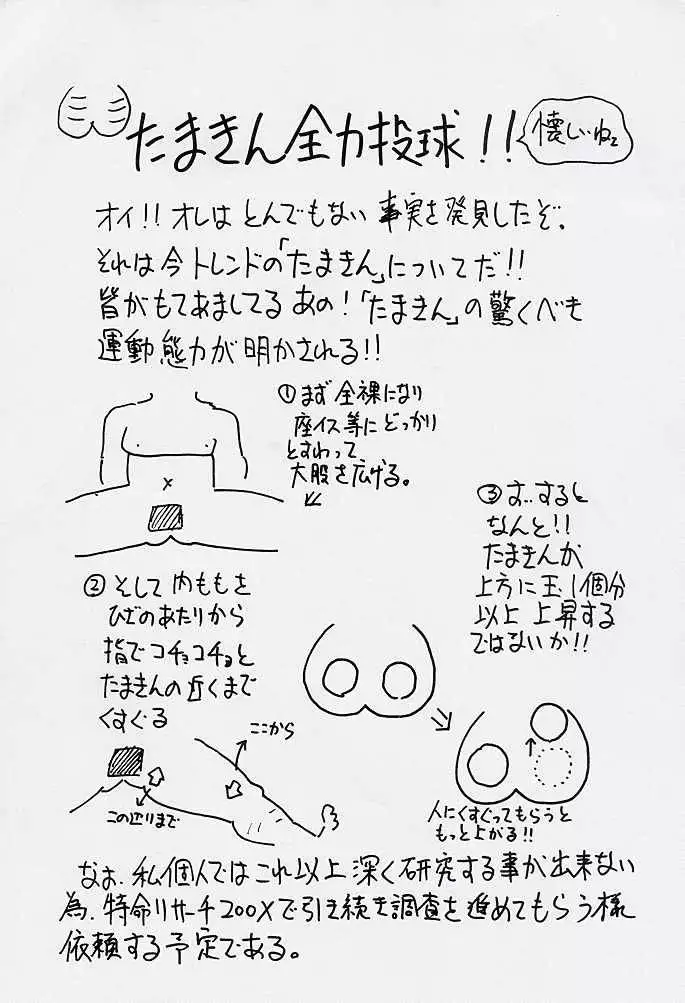 たまきん全力投球!!
懐しいねェ
オイ!! オレは とんでもない 事実を発見したぞ。
それは今トレンドの「たまきん」についてだ!!
皆がもてあましてる あの!「たまきん」の驚くべき
運動態力が明かされる!!
①まず全裸になり
座イス等にどっかり
とすわって
大股を広げる。
②そして内ももを
ひざのあたりから
指でコチョコチョと
たまきんの近くまで
くすぐる
ここから
この辺りまで
③す..すると
なんと!!
たまきんが
上方に玉1個分
以上上昇する
ではないか!!
人にくすぐってもらうと
もっと上がる!!
なお、私個人ではこれ以上深く研究する事が出来ない
為、特命リサーチ200Xで引き続き調査を進めてもらう様
依頼する予定である。